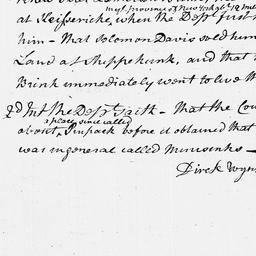 in y.e province of New York abt 12 miles
at Keissericke, when the Dept first
him - that Solomon Davis sold him
Land at Shippekunk, and that
Brink immediately went to live
2d Int. the Dept. saith - That the Cou
a place since called
about, Simpack before it obtained that
was in general called Minisinks -
Dirck Wyn